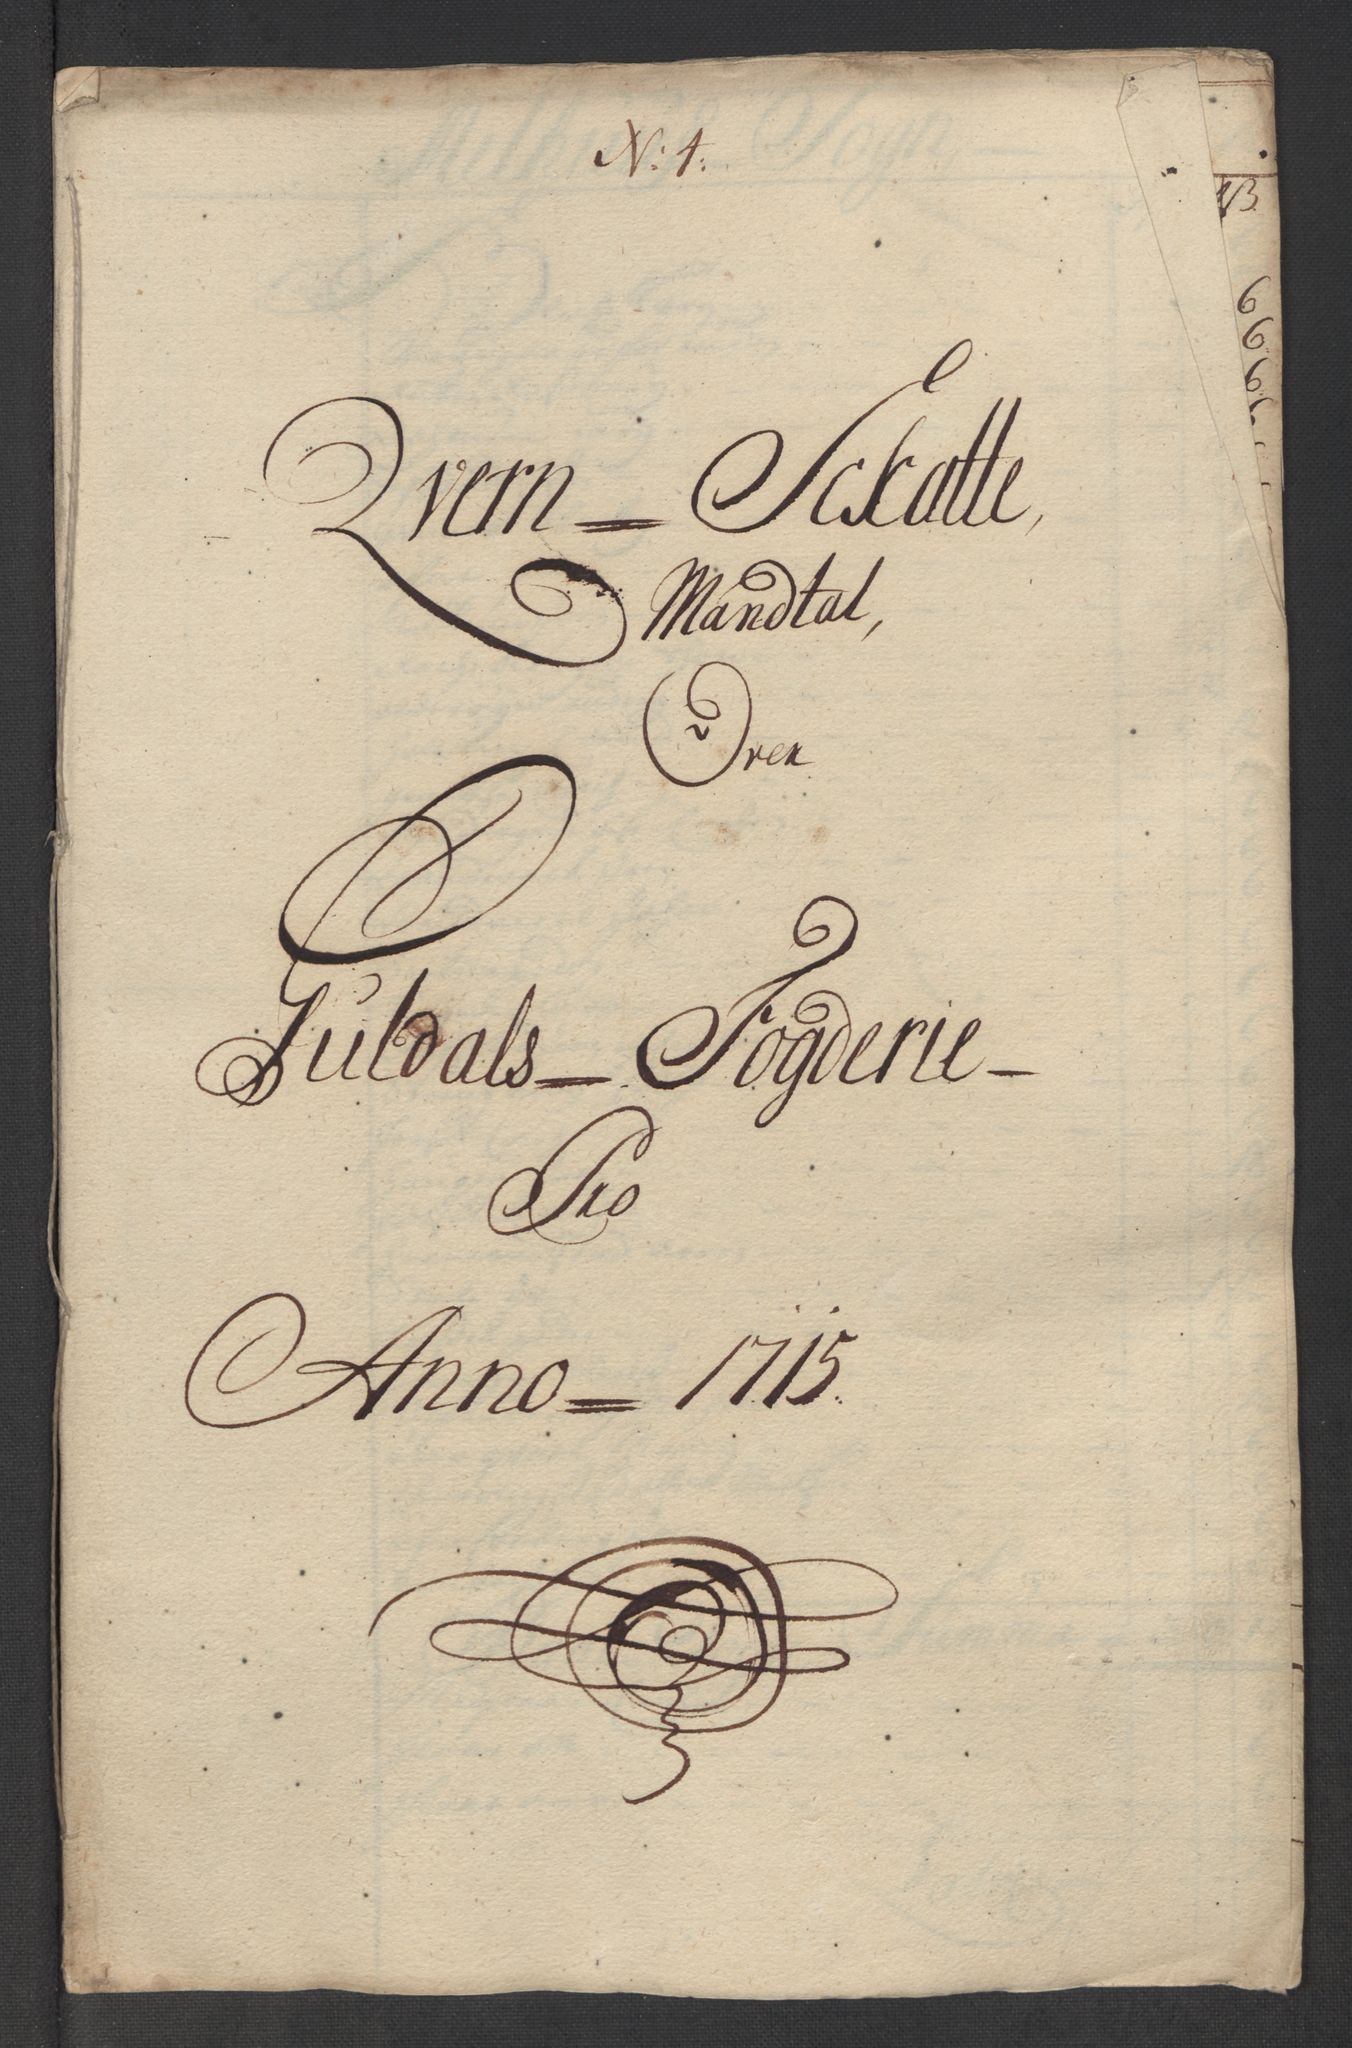 N: 4:
Qvern = Schatte,
Mandtal,
Over
Guldals = Fogderie -
Pro
Anno = 1715.